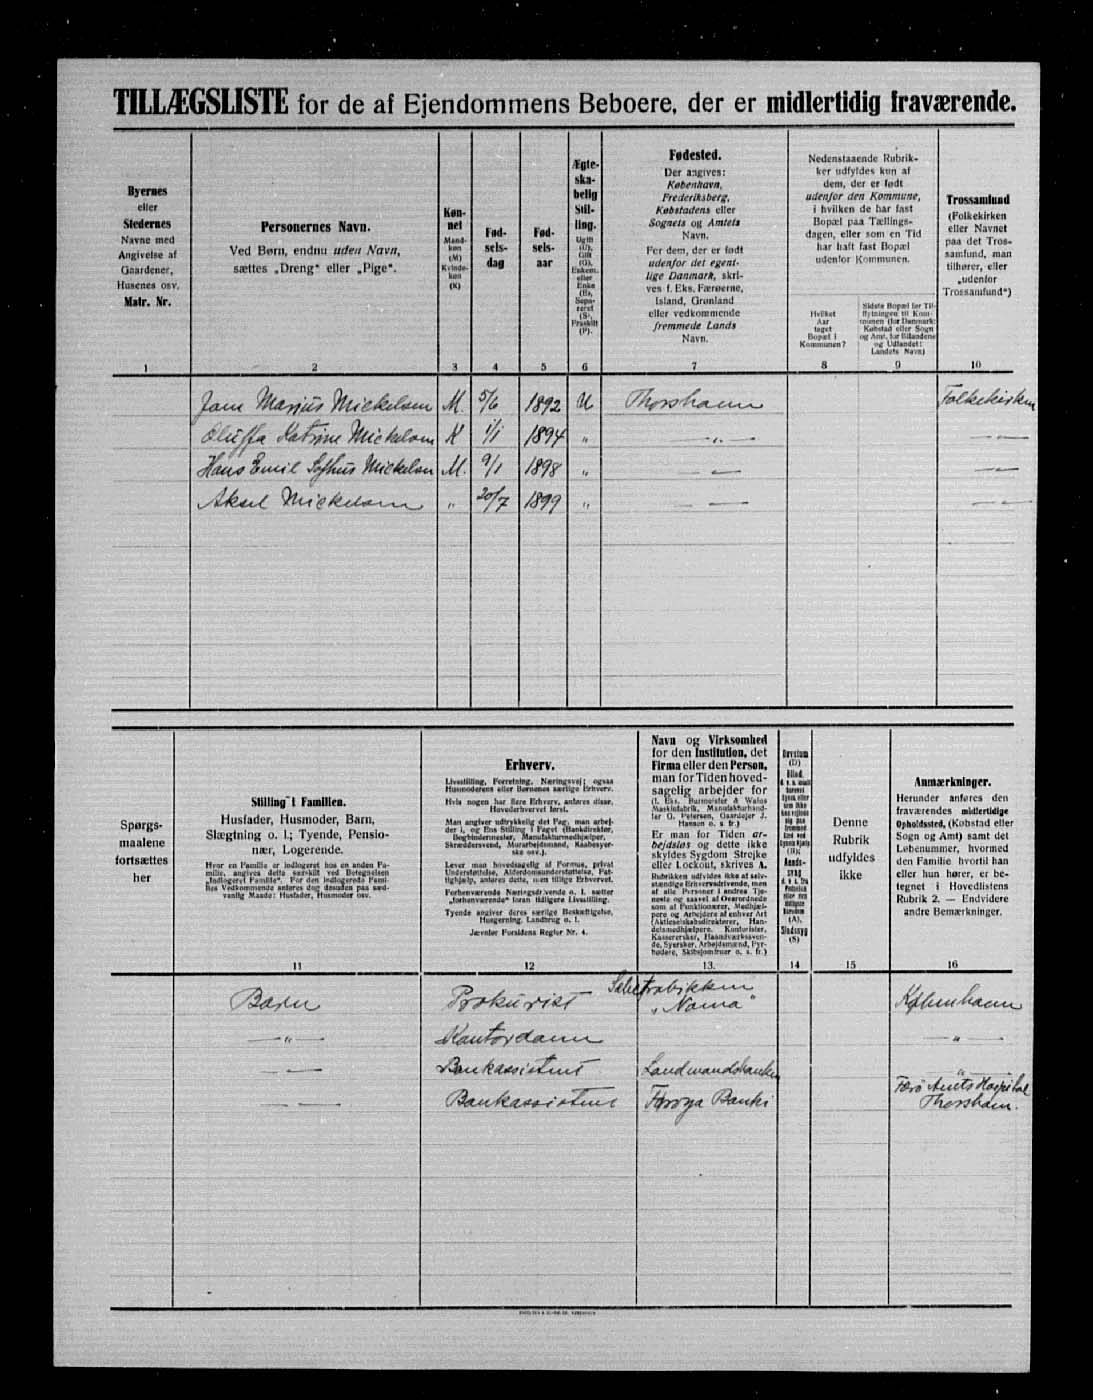 TILLÆGSLISTE for de af Ejendommens Beboere, der er midlertidig fraværende.
Byernes
eller
Stedernes
Navne med
Angivelse af
Gaardener,
Husenes osv.
Matr. Nr.
Personernes Navn.
Ved Børn, endnu uden Navn,
sættes „Dreng" eller „Pige".
Køn-
net
Mand-
køn
(M)
Kvinde-
køn
(K)
Fød-
sels-
dag
Fød-
sels-
aar
Ægte-
ska-
belig
Stil-
ling.
Ugift
(U),
Gift
(G),
Enkem.
eller
Enke
(E),
Sepa-
reret
(S),
Fraskilt
(F).
Fødested.
Der angives:
København,
Frederiksberg,
Købstadens eller
Sognets og Amtets
Navn.
For dem, der er født
udenfor det egent-
lige Danmark, skri-
ves f. Eks. Færøerne,
Island, Grønland
eller vedkommende
fremmede Lands
Navn.
Nedenstaaende Rubrik-
ker udfyldes kun af
dem, der er født
udenfor den Kommune,
i hvilken de har fast
Bopæl paa Tællings-
dagen, eller som en Tid
har haft fast Bopæl
udenfor Kommunen.
Hvilket
Aar
taget
Bopæl i
Kommunen?
Sidste Bopæl før Til-
flytningen til Kom-
munen (for Danmark:
Købstad eller Sogn
og Amt, for Bilandene
og Udlandet:
Landets Navn)
Trossamfund
(Folkekirken
eller Navnet
paa det Tros-
samfund, man
tilhører, eller
„udenfor
Trossamfund")
1 2 3 4 5 6 7 8 9 10
Jens Marius Mickelsen M. 5/6 1892 U Thorshavn Folkekirken
Oluffa Katrine Mickelsen K 1/1 1894 „ — „ — — „ —
Hans Emil Sofhus Mickelsen M. 9/1 1898 „ — „ — — „ —
Aksel Mickelsen „ 20/7 1899 „ — „ — — „ —
Spørgs-
maalene
fortsættes
her
Stilling i Familien.
Husfader, Husmoder, Barn,
Slægtning o. l.; Tyende, Pensio-
nær, Logerende.
Hvor en Familie er indlogeret hos en anden Fa-
milie, angives dette særskilt ved Betegnelsen
„Indlogeret Familie". For den indlogerede Fami-
lies Vedkommende anføres dog desuden paa sæd-
vanlig Maade: Husfader, Husmoder osv.
Erhverv.
Livsstilling, Forretning, Næringsvej; ogsaa
Husmoderens eller Børnenes særlige Erhverv.
Hvis nogen har flere Erhverv, anføres disse,
Hovederhvervet først.
Man angiver udtrykkelig det Fag, man arbej-
der i, og Ens Stilling i Faget (Bankdirektør,
Bogbindermester, Manufakturmedhjælper,
Skræddersvend, Murarbejdsmand, Kaabesyer-
ske osv.).
Lever man hovedsagelig af Formue, privat
Understøttelse, Alderdomsunderstøttelse, Fat-
tighjælp, anføres dette, men tillige Erhvervet.
Forhenværende Næringsdrivende o. l. sætter
„forhenværende" foran tidligere Livsstilling.
Tyende angiver deres særlige Beskæftigelse,
Husgerning, Landbrug o. l.
Jævnfør Forsidens Regler Nr. 4.
Navn og Virksomhed
for den Institution, det
Firma eller den Person,
man for Tiden hoved-
sagelig arbejder for
(f. Eks. Burmeister & Wains
Maskinfabrik, Manufakturhand-
ler G. Petersen, Gaardejer J.
Hansen o. s. fr.)
Er man for Tiden ar-
bejdsløs og dette ikke
skyldes Sygdom Strejke
eller Lockout, skrives A.
Rubrikken udfyldes ikke af selv-
stændige Erhvervsdrivende, men
af alle Personer i andres Tje-
neste og saavel af Overordnede
som af Funktionærer, Medhjæl-
pere og Arbejdere af enhver Art
(Aktieselskabsdirektører, Han-
delsmedhjælpere, Kontorister,
Kassererske, Haandværkssven-
de, Syersker, Arbejdsmænd, Fyr-
bødere, Skibsjomfruer o. s. fr.)
Døvstum
(D)
Blind,
(B);
Aands-
svag
(A),
Sindssyg
(S)
Denne
Rubrik
udfyldes
ikke
Anmærkninger.
Herunder anføres den
fraværendes midlertidige
Opholdssted, (Købstad eller
Sogn og Amt) samt det
Løbenummer, hvormed
den Familie hvortil han
eller hun hører, er be-
tegnet i Hovedlistens
Rubrik 2. — Endvidere
andre Bemærkninger.
11 12 13. 14 15 16
Børn Prokurist „Noma" København
— „ — Kontordame — „ —
— „ — Bankassistent Landmandsbanken „
— Bankassistent Føroya Banki Færø Amts Hospital
Thorshavn.